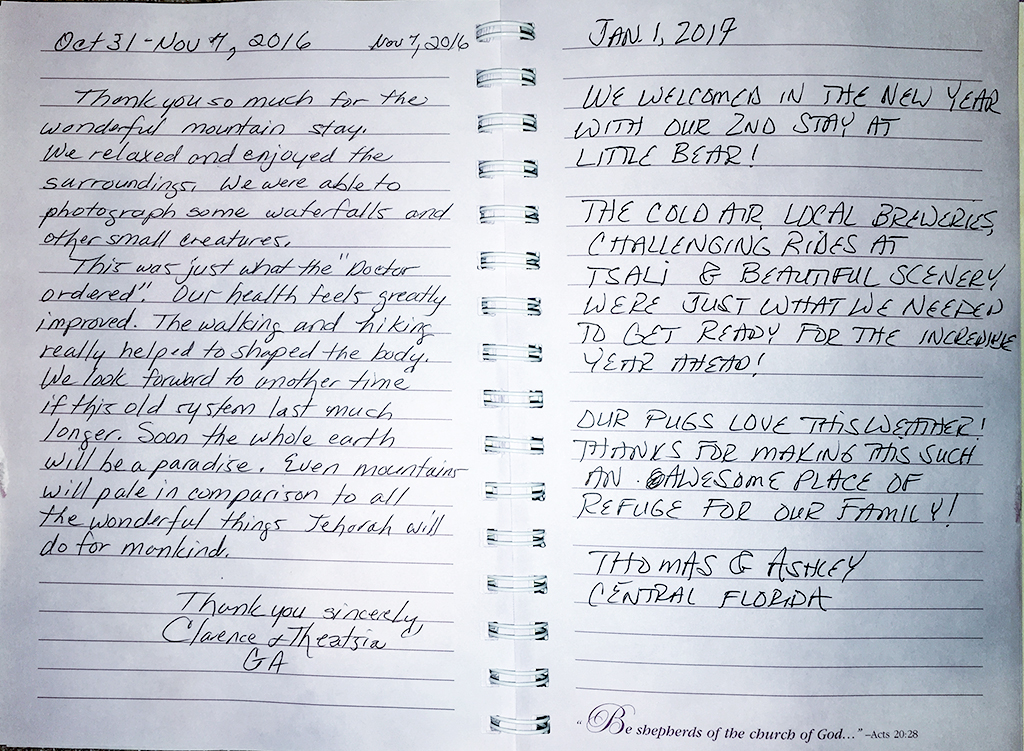 Oct 31 - Nov 7, 2016 Nov 7, 2016
Thank you so much for the
wonderful mountain stay.
We relaxed and enjoyed the
surroundings. We were able to
photograph some waterfalls and
other small creatures.
This was just what the "Doctor
ordered". Our health feels greatly
improved. The walking and hiking
really helped to shaped the body.
We look forward to another time
if this old system last much
longer. Soon the whole earth
will be a paradise. Even mountains
will pale in comparison to all
the wonderful things Jehovah will
do for mankind.
Thank you sincerely,
Clarence &
GA
JAN. 1, 2017
WE WELCOMED IN THE NEW YEAR
WITH OUR 2ND STAY AT
LITTLE BEAR!
THE COLD AIR, LOCAL BREWERIES,
CHALLENGING RIDES AT
TSALI & BEAUTIFUL SCENERY
WERE JUST WHAT WE NEEDED
TO GET READY FOR THE INCREDIBLE
YEAR AHEAD!
OUR PUGS LOVE THIS WEATHER!
THANKS FOR MAKING THIS SUCH
AN AWESOME PLACE OF
REFUGE FOR OUR FAMILY!
THOMAS & ASHLEY
CENTRAL FLORIDA
"Be shepherds of the church of God..." –Acts 20:28